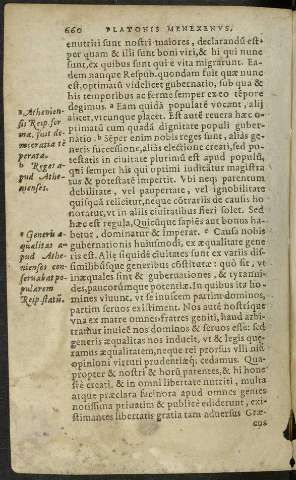 660 PLATONIS MENEXENVS,
enutriti sunt nostri maiores, declarandū est:
per quam & illi sunt boni viri, & hi qui nunc
sunt, ex quibus sunt qui è vita migrarunt. Ea-
dem nanque Respub. quondam fuit quæ nunc
est, optimatū videlicet gubernatio, sub qua &
his temporibus ac ferme semper ex eo tēpore
degimus. ᵃ Eam quidā populatē vocant, alij
aliter, vt cuique placet. Est autē reuera hæc o-
ptimatū cum quadā dignitate populi guber-
natio. ᵇ Sēper enim nobis reges sunt, aliàs ge-
neris successione, aliàs electione creati, sed po-
testatis in ciuitate plurimū est apud populū,
qui semper his qui optimi iudicātur magistra-
tus & potestatē impertit. Vbi neq; parentum
debilitate, vel paupertate, vel ignobilitate
quisquā relicitur, neque cōtrariis de causis ho
noratur, vt in aliis ciuitatibus fieri solet. Sed
hæc est regula, Quicūque sapiēs aut bonus ha-
betur, dominatur & imperat. ᶜ Causa nobis
gubernationis huiusmodi, ex æqualitate gene
ris est. Alię siquidē ciuitates sunt ex variis dis-
similibúsque generibus cōstitutæ: quò fit, vt
inæquales sint & gubernationes, & tyranni-
des, paucorúmque potentiæ. In quibus ita ho-
mines viuunt, vt se inuicem partim dominos,
partim seruos existiment. Nos autē nostrique
vna ex matre omnes fratres geniti, haud arbi-
tramur inuicē nos dominos & seruos esse: sed
generis æqualitas nos inducit, vt & legis quę-
ramus æqualitatem, neque rei prorsus vlli nisi
opinioni virtuti prudentiæq; cedimus. Qua-
propter & nostri & horū parentes, & hi hone
stè creati, & in omni libertate nutriti, multa
atque præclara facinora apud omnes gentes
notissima priuatim & publicè ediderunt, exi-
stimantes libertatis gratia tam aduersus Græ-
cos
a Athenien-
sis Reip. for
ma, fuit de-
mocratia tē
perata.
b Reges a-
pud Athe-
nienses.
c Generis æ-
qualitas a-
pud Athe-
nienses con-
seruabat po-
pularem
Reip. statū.